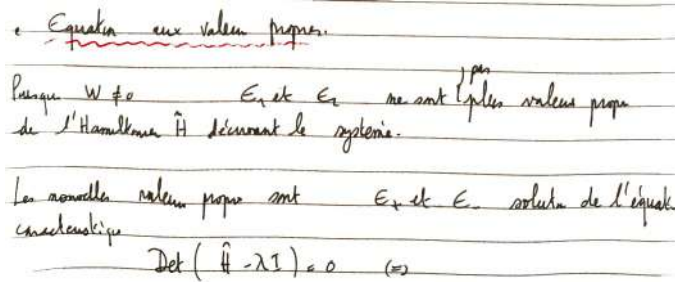 • Equation aux valeurs propres.
pas
Puisque W ≠ 0 E₁ et E₂ ne sont plus valeurs propre
de l'Hamiltonien Ĥ décrivant le système.
Les nouvelles valeurs propre sont E₊ et E₋ solution de l'équat
caractéristique
Det ( Ĥ - λI ) = 0 (=)